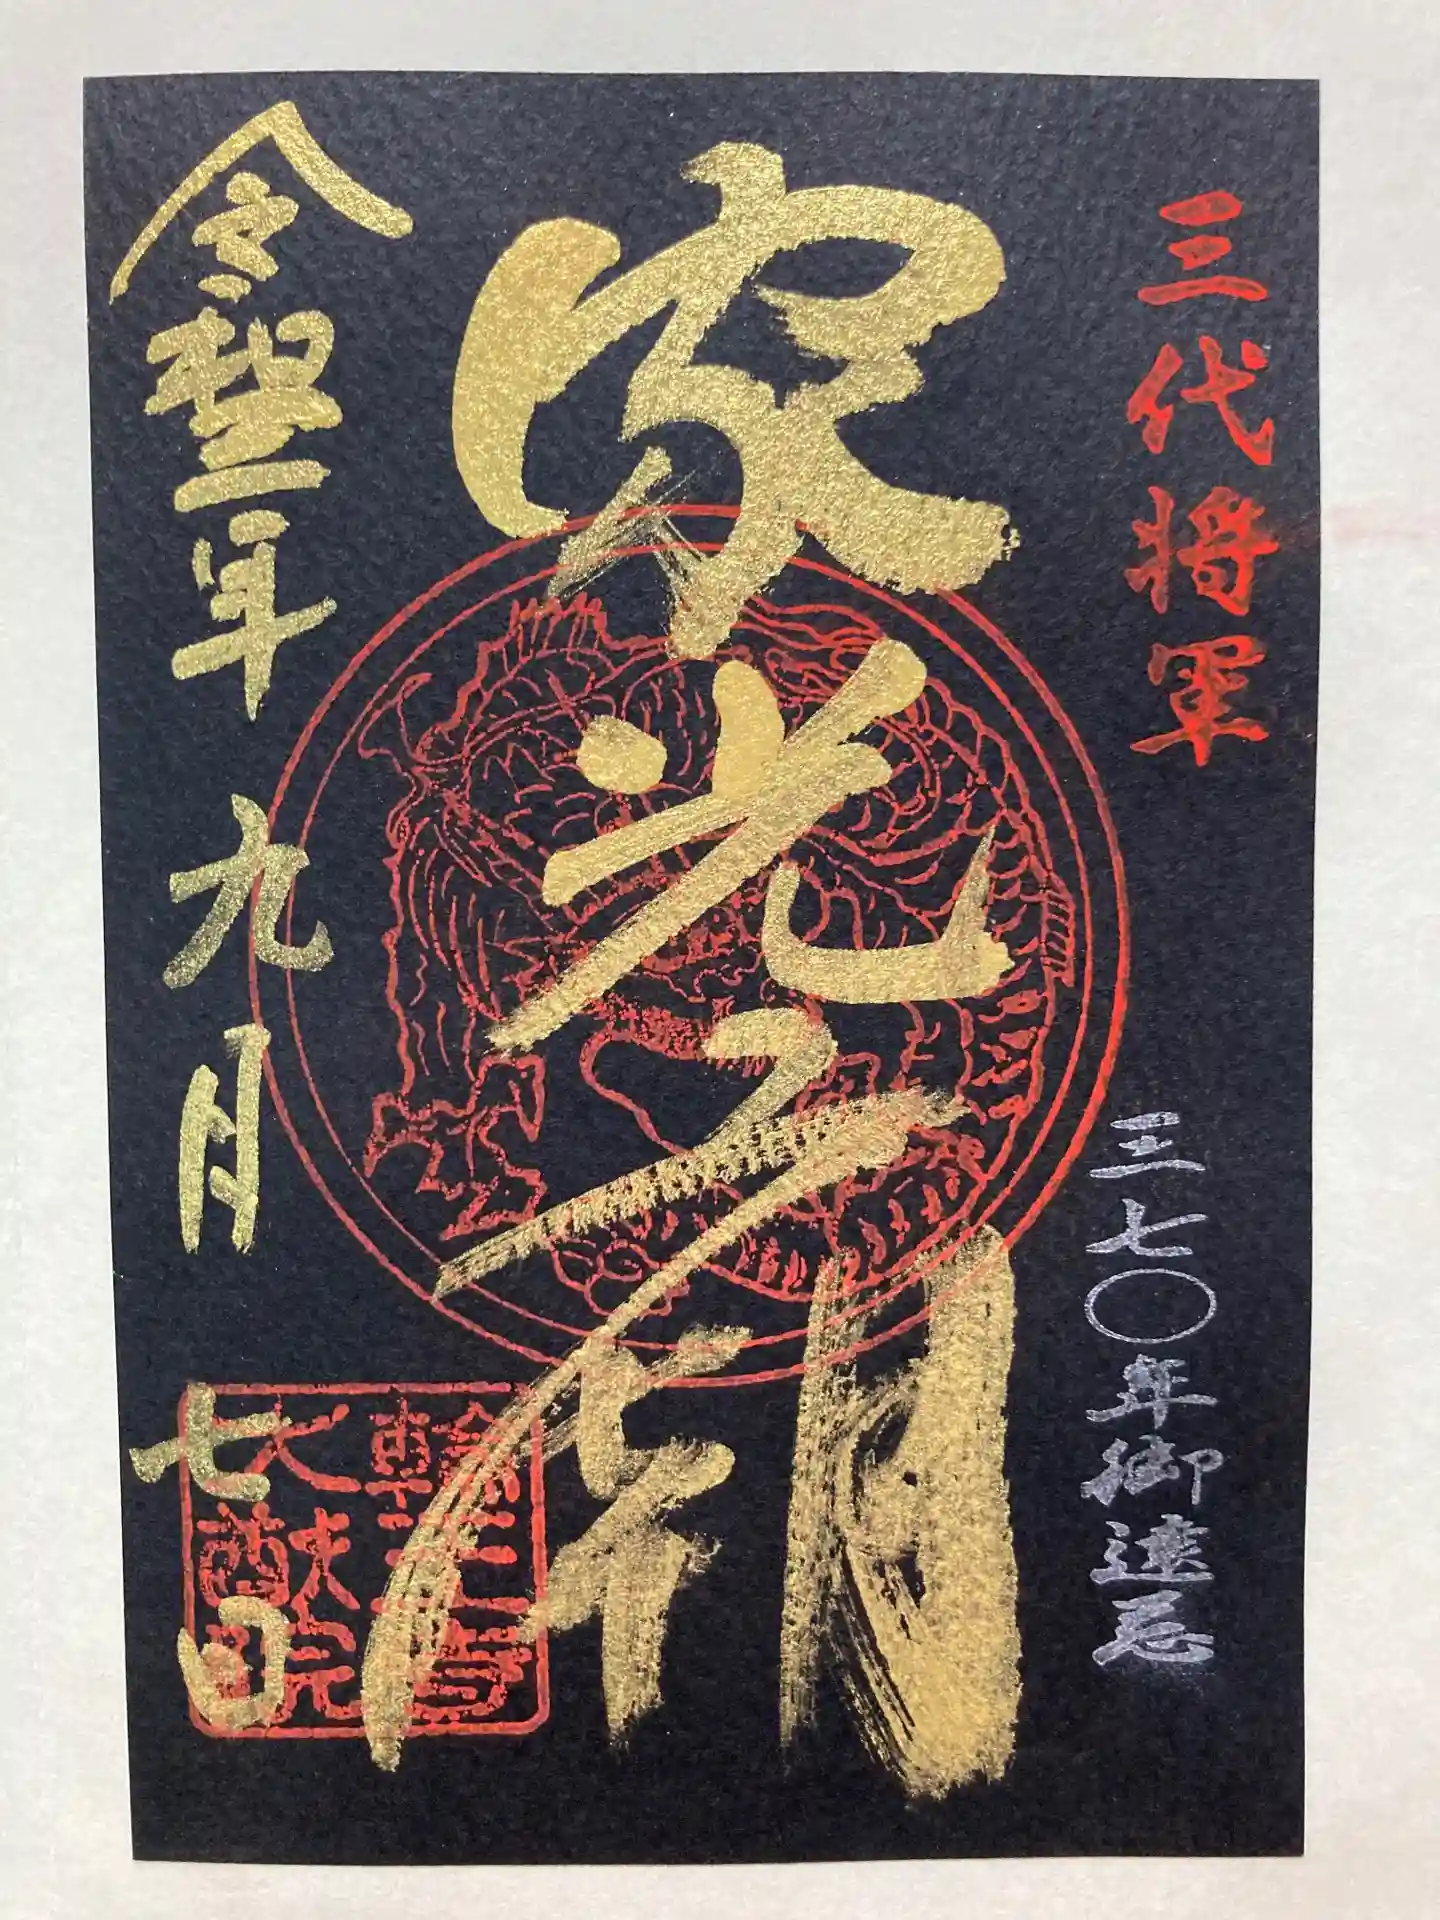 三代将軍
三七〇年御遠忌
家光公
令和二年九月七日
輪王寺
大猷院